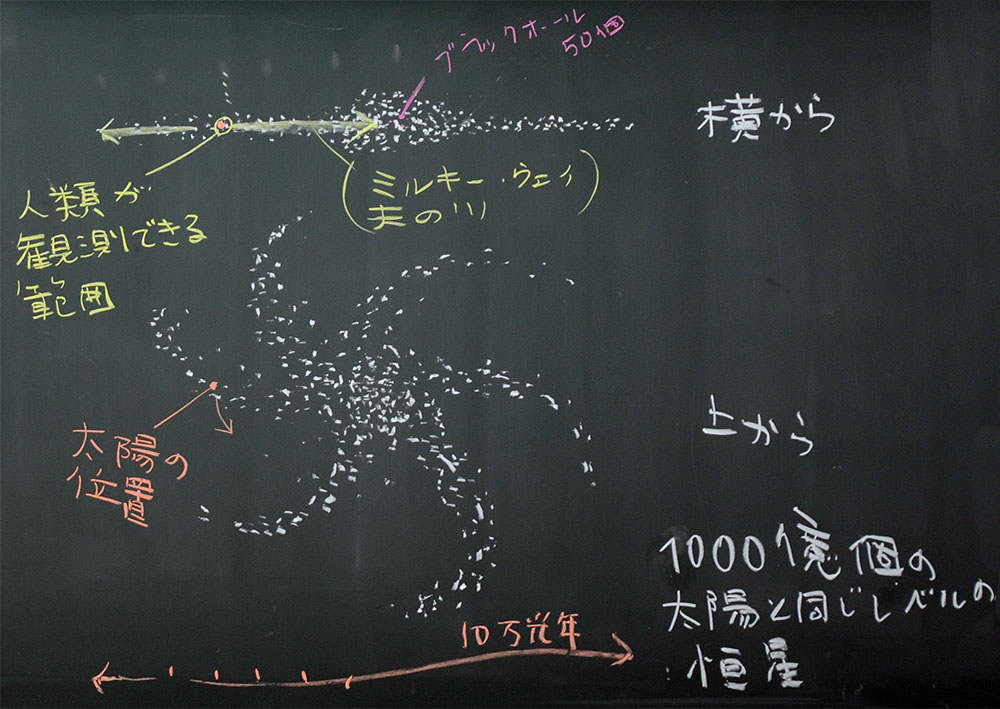 ブラックホール
50個
横から
人類が
観測できる
範囲
(ミルキー・ウェイ
天の川)
上から
太陽の
位置
1000億個の
太陽と同じレベルの
恒星
10万光年